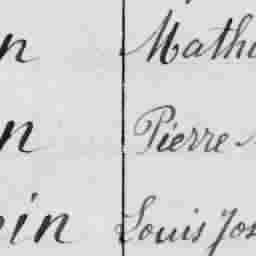 n Mathu
n Pierre
in Louis Jos